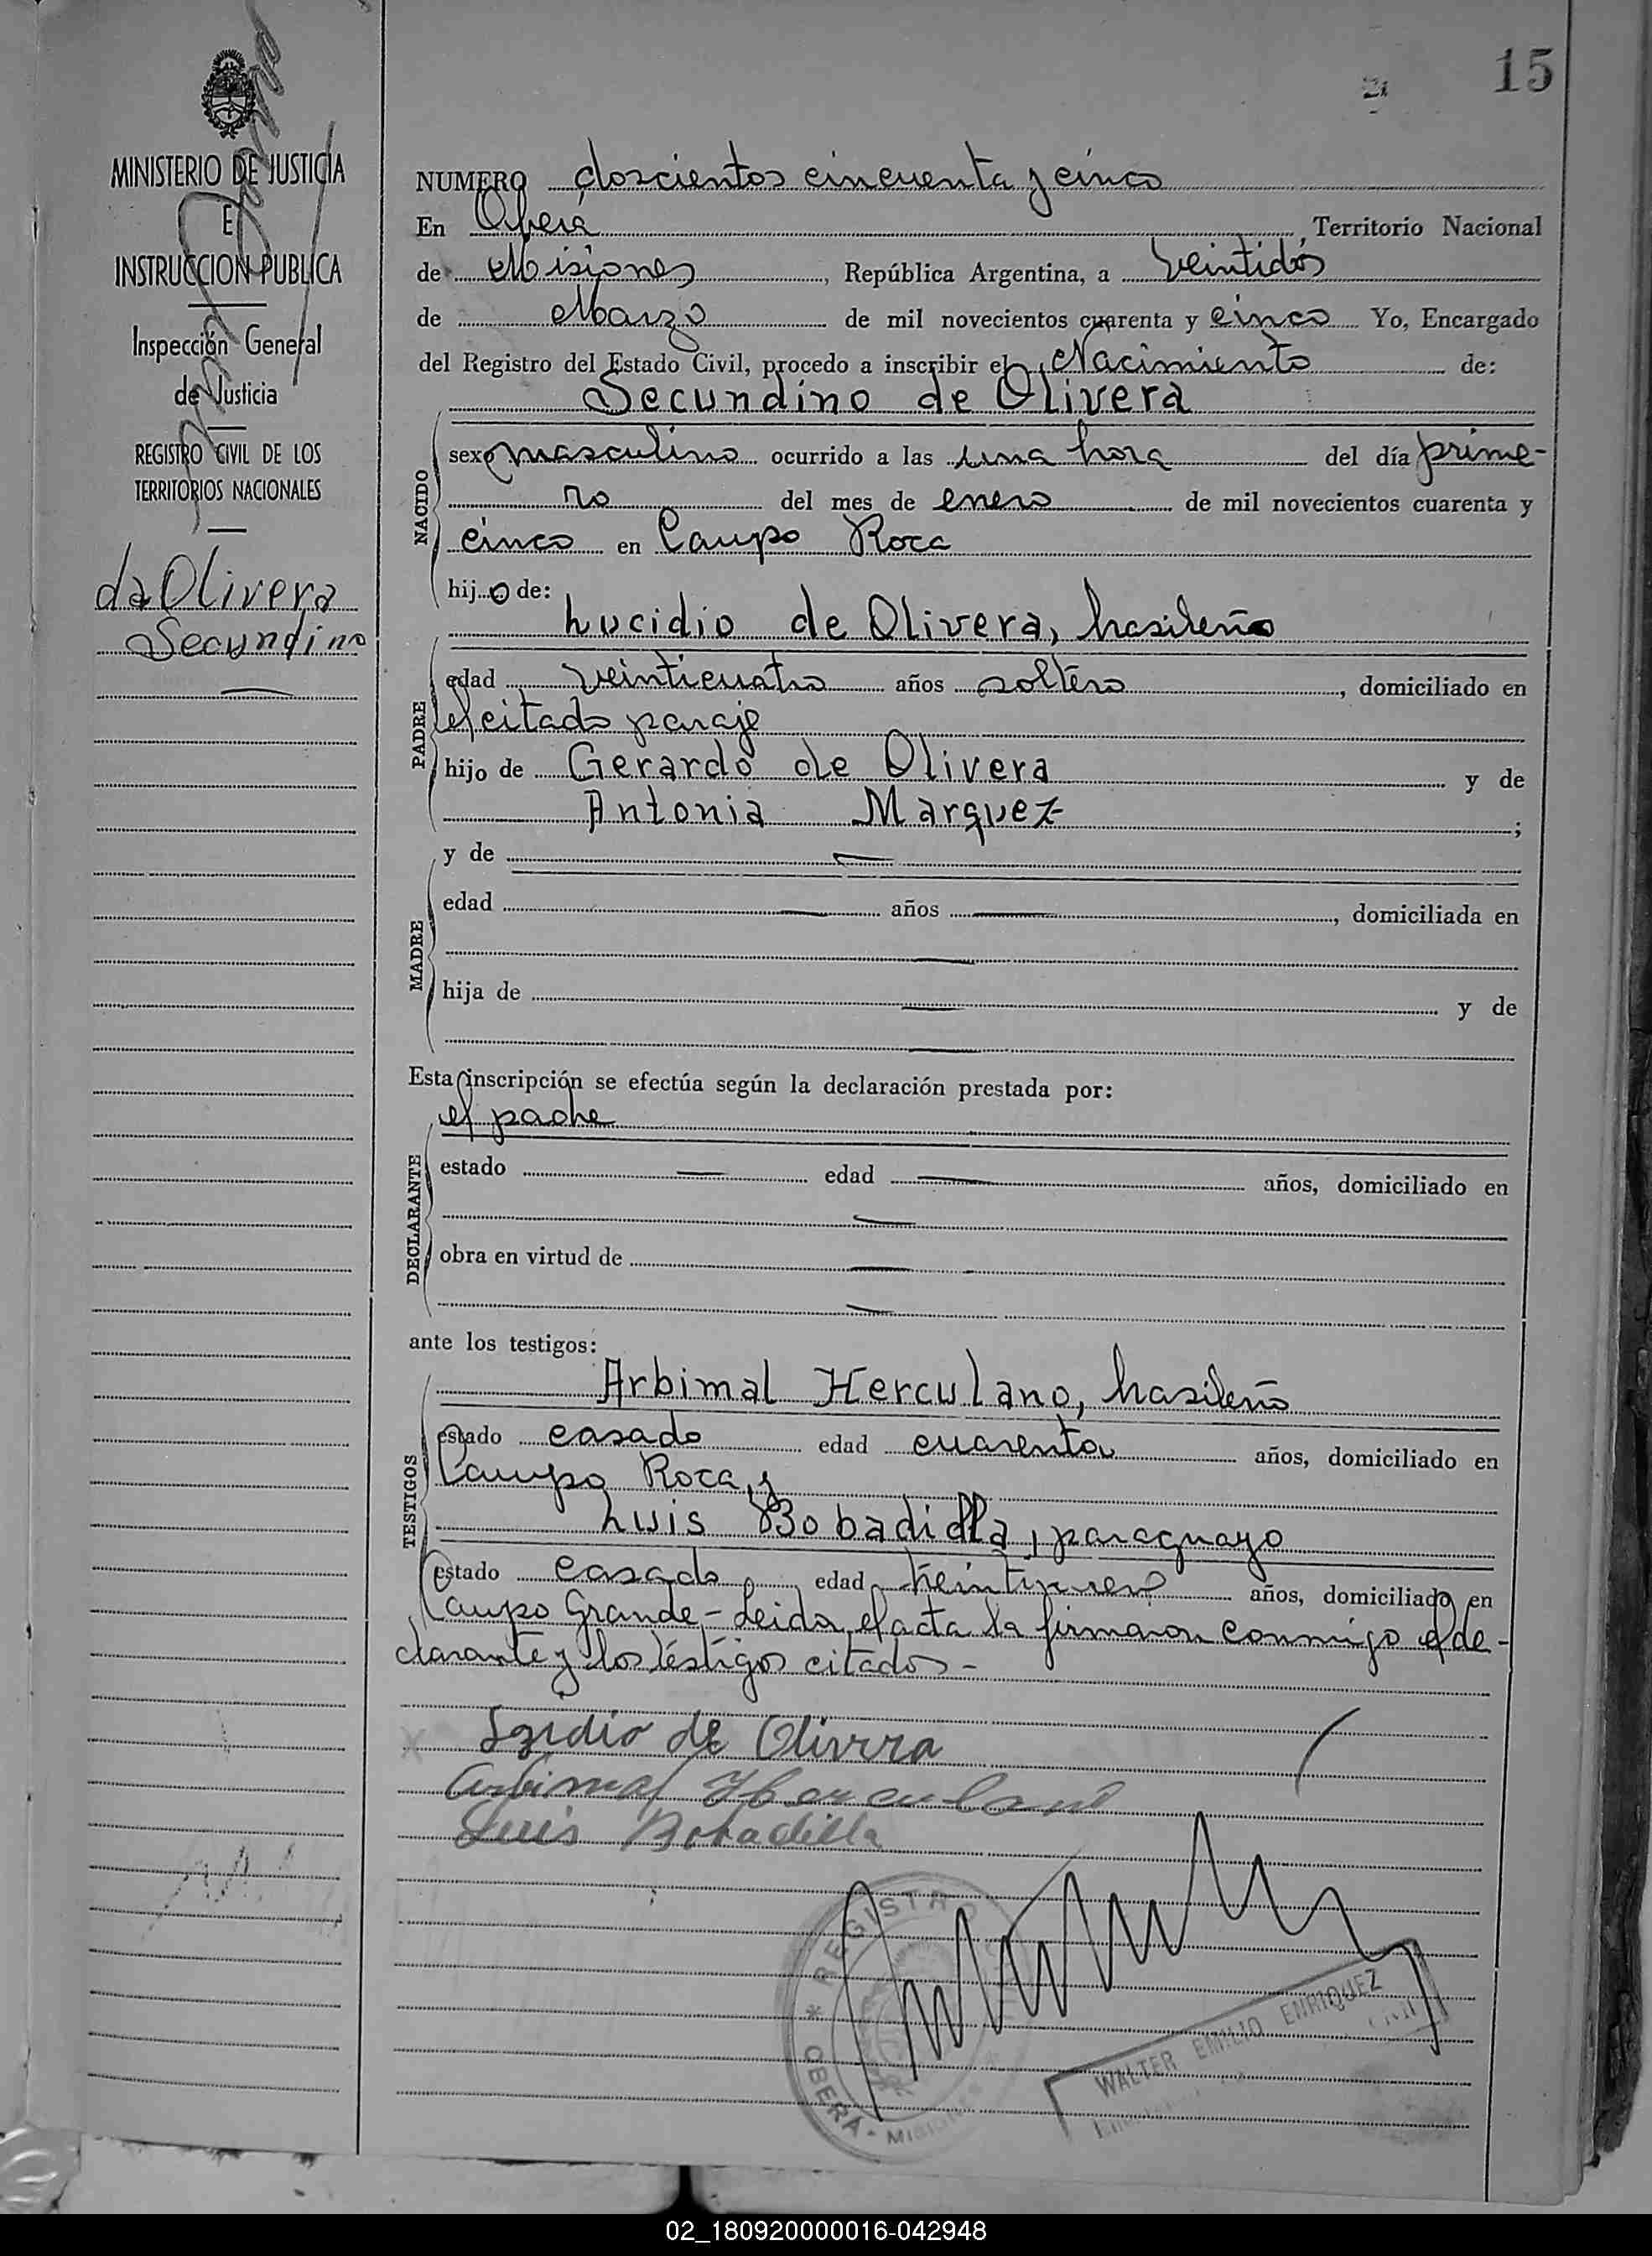 15
MINISTERIO DE JUSTICIA
E
INSTRUCCION PUBLICA
Inspección General
de Justicia
REGISTRO CIVIL DE LOS
TERRITORIOS NACIONALES
da Olivera
Secundino
NUMERO doscientos cincuenta y cinco
En Oberá, Territorio Nacional
de Misiones, República Argentina, a veintidós
de Marzo de mil novecientos cuarenta y cinco Yo, Encargado
del Registro del Estado Civil, procedo a inscribir el Nacimiento de:
Secundino de Olivera
NACIDO
sexo masculino ocurrido a las una hora del día prime-
ro del mes de enero de mil novecientos cuarenta y
cinco en Campo Roca
hijo de:
PADRE
Lucidio de Olivera, brasileño
edad veinticuatro años soltero, domiciliado en
el citado paraje
hijo de Gerardo de Olivera y de
Antonia Marquez ;
MADRE
y de
edad años , domiciliada en
hija de y de
Esta inscripción se efectúa según la declaración prestada por:
el padre
DECLARANTE
estado edad años, domiciliado en
obra en virtud de
ante los testigos:
TESTIGOS
Arbimal Herculano, brasileño
estado casado edad cuarenta años, domiciliado en
Campo Roca, y
Luis Bobadilla, paraguayo
estado casado, edad años, domiciliado en
Campo Grande - Leida el acta la firmaron conmigo el de-
clarante y los testigos citados -
de Olivera
Arbimal Herculano
Luis Bobadilla
REGISTRO
OBERÁ - MISIONES
WALTER EMILIO ENRIQUEZ
02_180920000016-042948